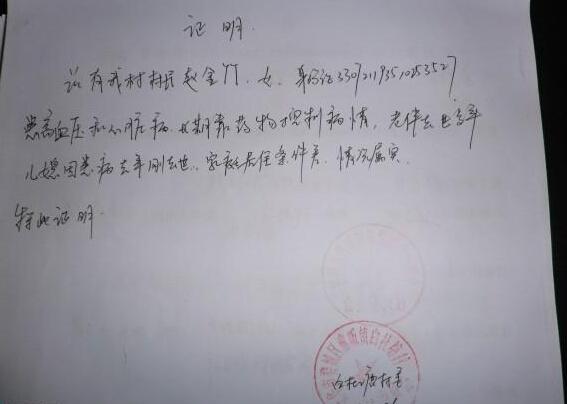 证明.
兹有我村村民赵金竹,女、身份证330721193510253527
患高血压和心脏病.长期靠药物控制病情,老伴去世多年
儿媳因患病去年刚去世.家庭居住条件差.情况属实.
特此证明.